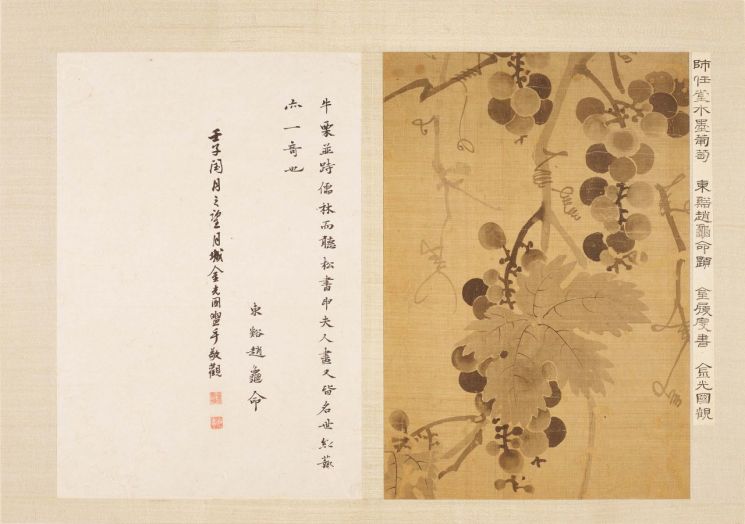 師任堂水墨葡萄 東谿趙龜命題 金履度書 金光國觀
牛栗並跱儒林而聽松書申夫人畫又皆名世於藝
亦一奇也
東谿趙龜命
壬子閏月之望月城金光國盥手敬觀